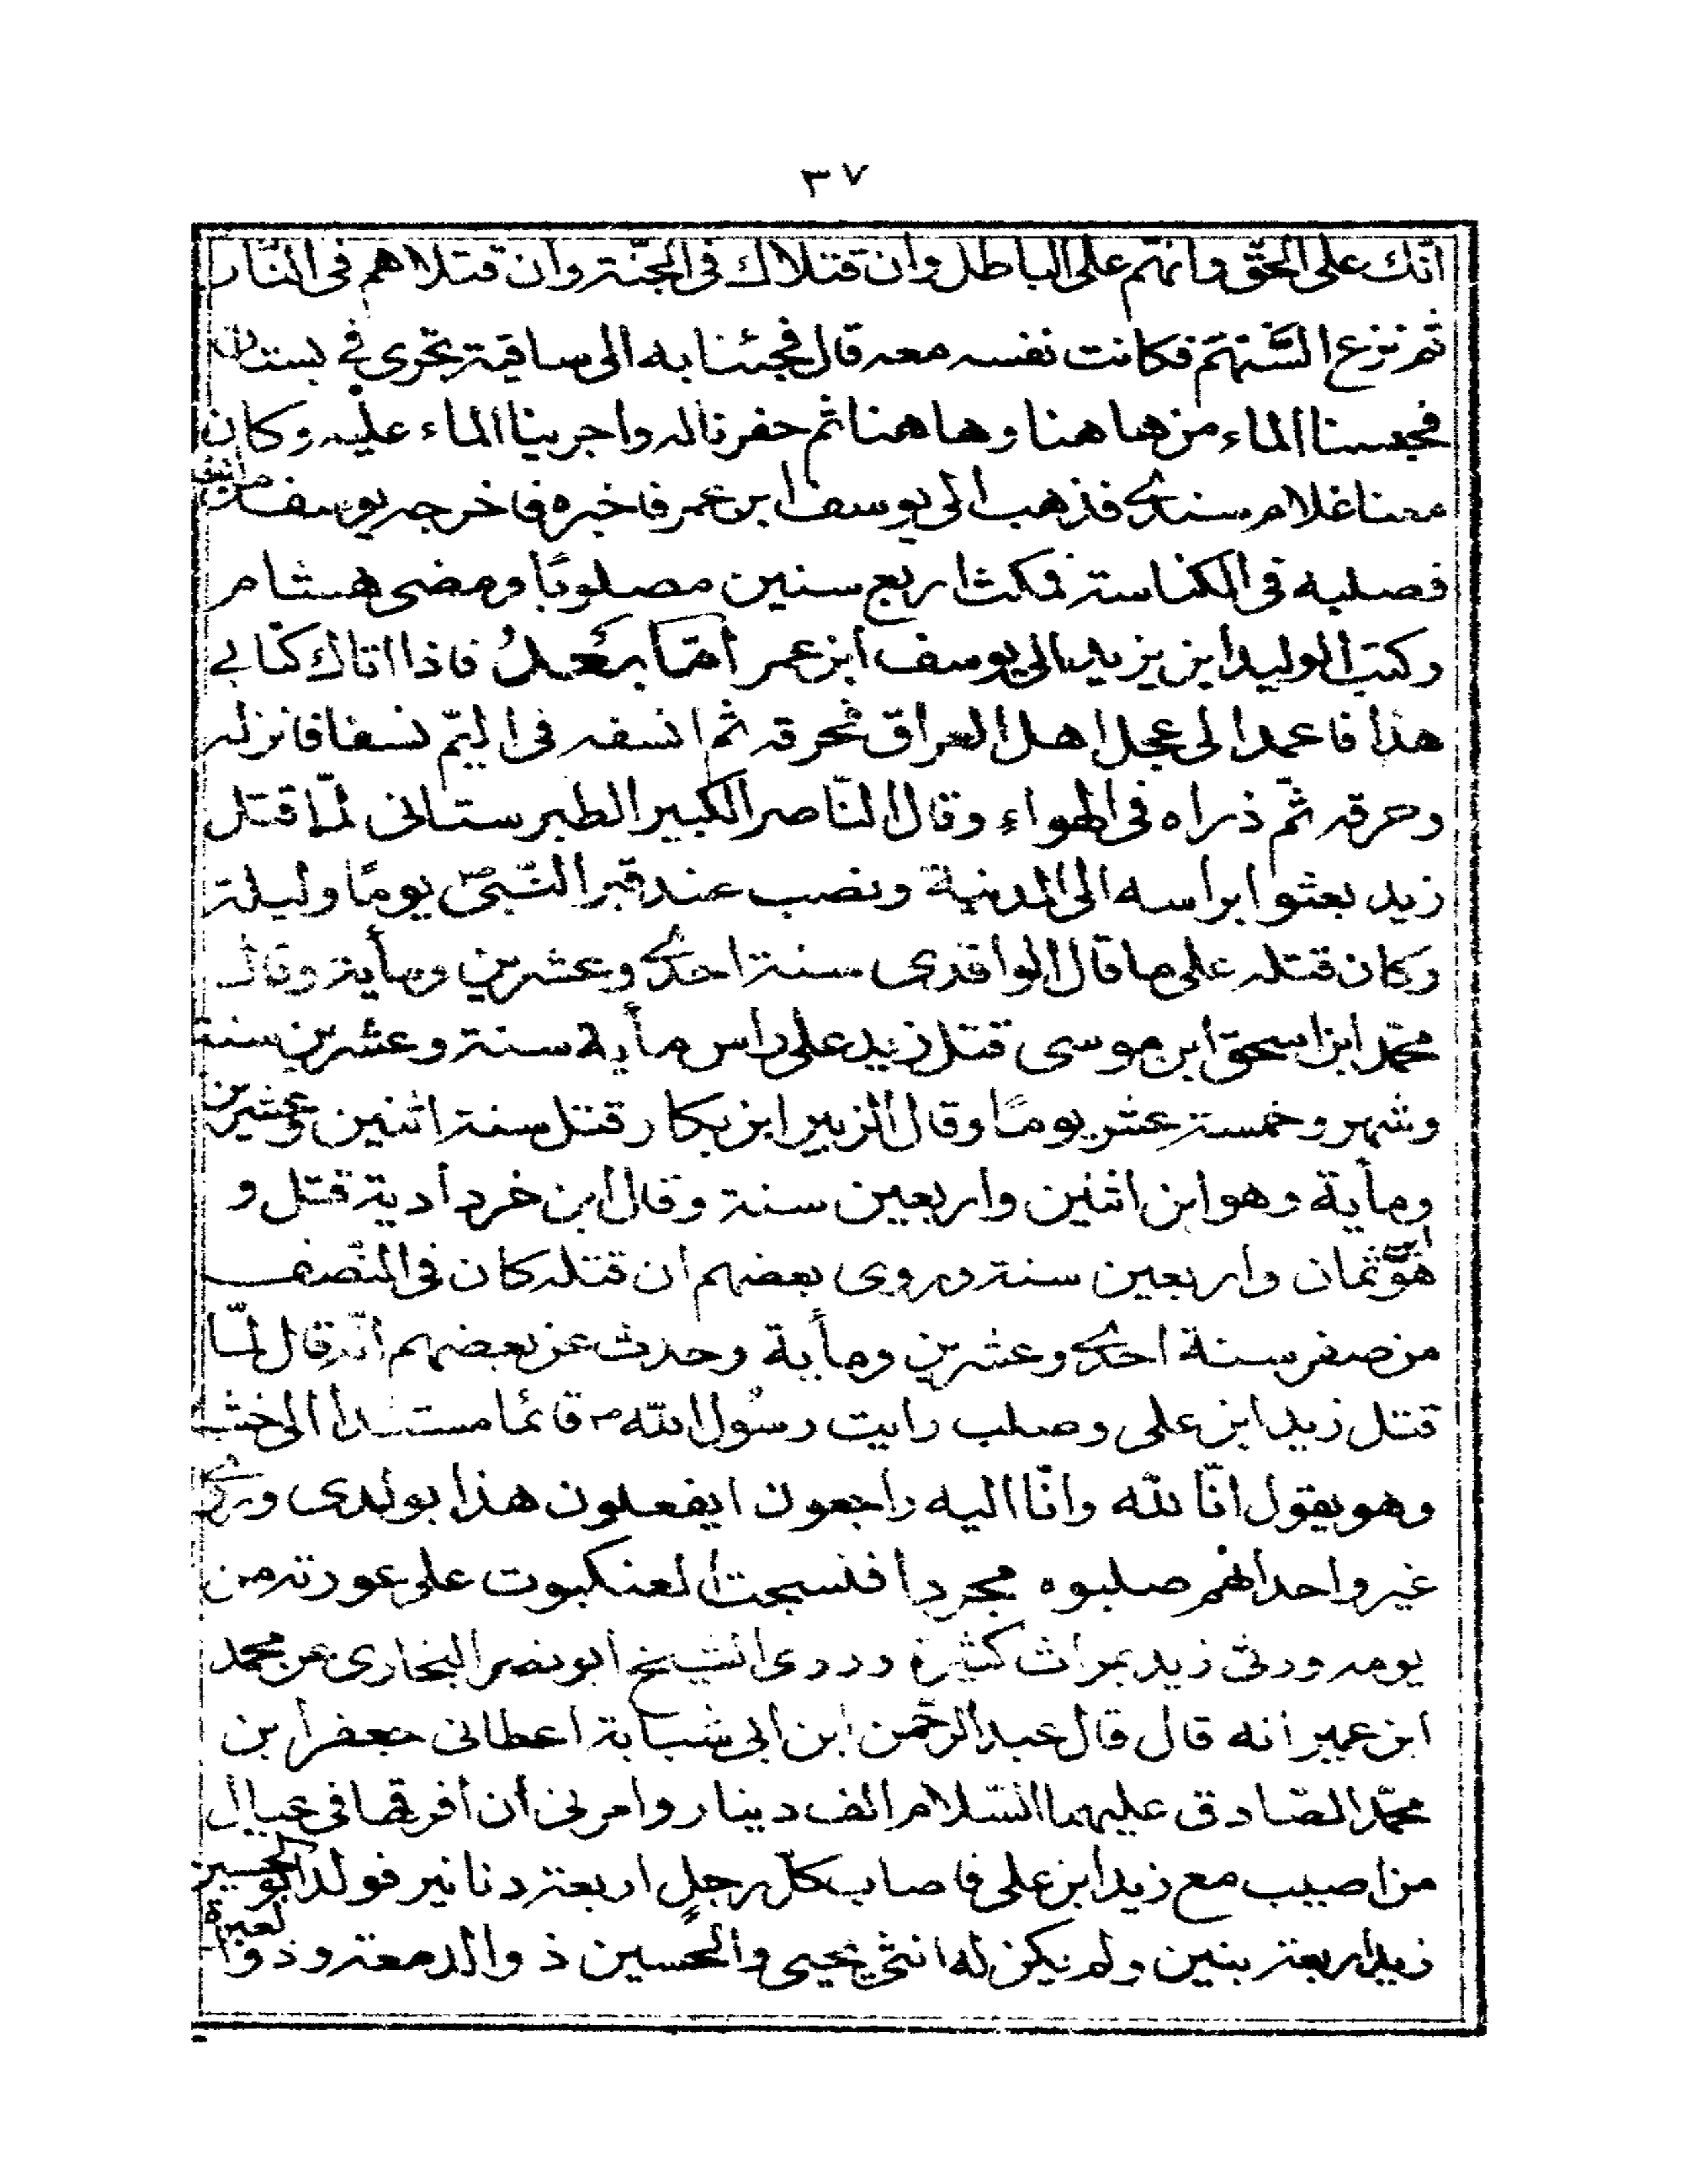 ٣٧
انّك على الحقّ وانهّم على الباطل وان قتلاك فى الجنّة وان قتلاهم فى النّار
ثم نزع السّهم فكانت نفسه معه قال فجئنا به الى ساقية تجرى في بستان
فحبسنا الماء من هاهنا وهاهنا ثم حفرنا له واجرينا الماء عليه وكان
معنا غلام سندى فذهب الى يوسف ابن عمر فاخبره فاخرجه يوسف من
فصلبه فى الكناسة فمكث اربع سنين مصلوبًا ومضى هشام
وكتب الوليد ابن يزيد الى يوسف ابن عمر أمّا بَعدُ فاذا اتاك كتابي
هذا فاعمد الى عجل اهل العراق فحرقه ثم انسفه فى اليمّ نسفا فانزله
وحرقه ثمّ ذراه فى الهواء وقال النّاصر الكبير الطبرستانى لمّا قتل
زيد بعثوا براسه الى المدنية ونصب عند قبر النّبىّ ص يومًا وليلة
وكان قتله على ما قال الواقدى سنة احدى وعشرين ومأية وقال
محمّد ابن اسحق ابن موسى قتل زيد على راس مأية سنة وعشرين سنة
وشهر وخمسة عشر يومًا وقال الزبير ابن بكار قتل سنة اثنين وعشرين
ومأية وهو ابن اثنين واربعين سنة وقال ابن خردأدية قتل و
هو ابن ثمان واربعين سنة وروى بعضهم ان قتله كان فى النّصف
من صفر سنة احدى وعشرين ومأية وحدث عن بعضهم انّه قال لمّا
قتل زيد ابن على وصلب رايت رسُول الله ص قائما مستندا الى خشبة
وهو يقول انّا لله وانّا اليه راجعون ايفعلون هذا بولدى وروى
غير واحد انهم صلبوه مجردا فنسجت العنكبوت على عورته من
يومه ورثى زيد بمراث كثيرة وروى الشيخ ابو نصر البخارى عن محمد
ابن عمير انه قال قال عبد الرحّمن ابن ابى شبابة اعطانى جعفر ابن
محمّد الصّادق عليهما السّلام الف دينار وامرنى ان أفرقها فى عيال
من اصيب مع زيد ابن على فاصاب كلّ رجلٍ اربعة دنانير فولد ابو الحسين
زيد اربعة بنين ولم يكن له انثى يحيى والحسين ذو الدمعة وذو العبرة